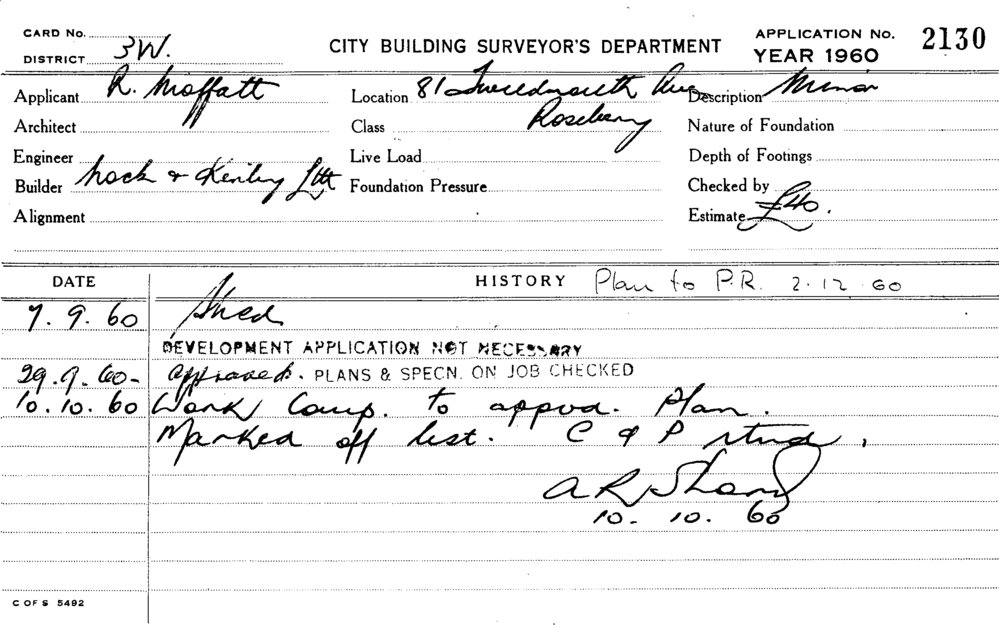 CARD No.
DISTRICT 3W.
CITY BUILDING SURVEYOR'S DEPARTMENT
APPLICATION No. 2130
YEAR 1960
Applicant R. Moffatt
Location 81 Tweedmouth Ave
Roseberry
Description Minor
Architect
Class
Nature of Foundation
Engineer
Live Load
Depth of Footings
Builder & Ltd
Foundation Pressure
Checked by
Alignment
Estimate £40.
DATE
HISTORY Plan to P.R. 2.12.60
7.9.60 Shed
DEVELOPMENT APPLICATION NOT NECESSARY
29.9.60- Approved. PLANS & SPECN. ON JOB CHECKED
10.10.60 Work Comp. to appvd. Plan.
Marked off list. C & P rtnd.
A R Shand
10. 10. 60
C OF S 5492